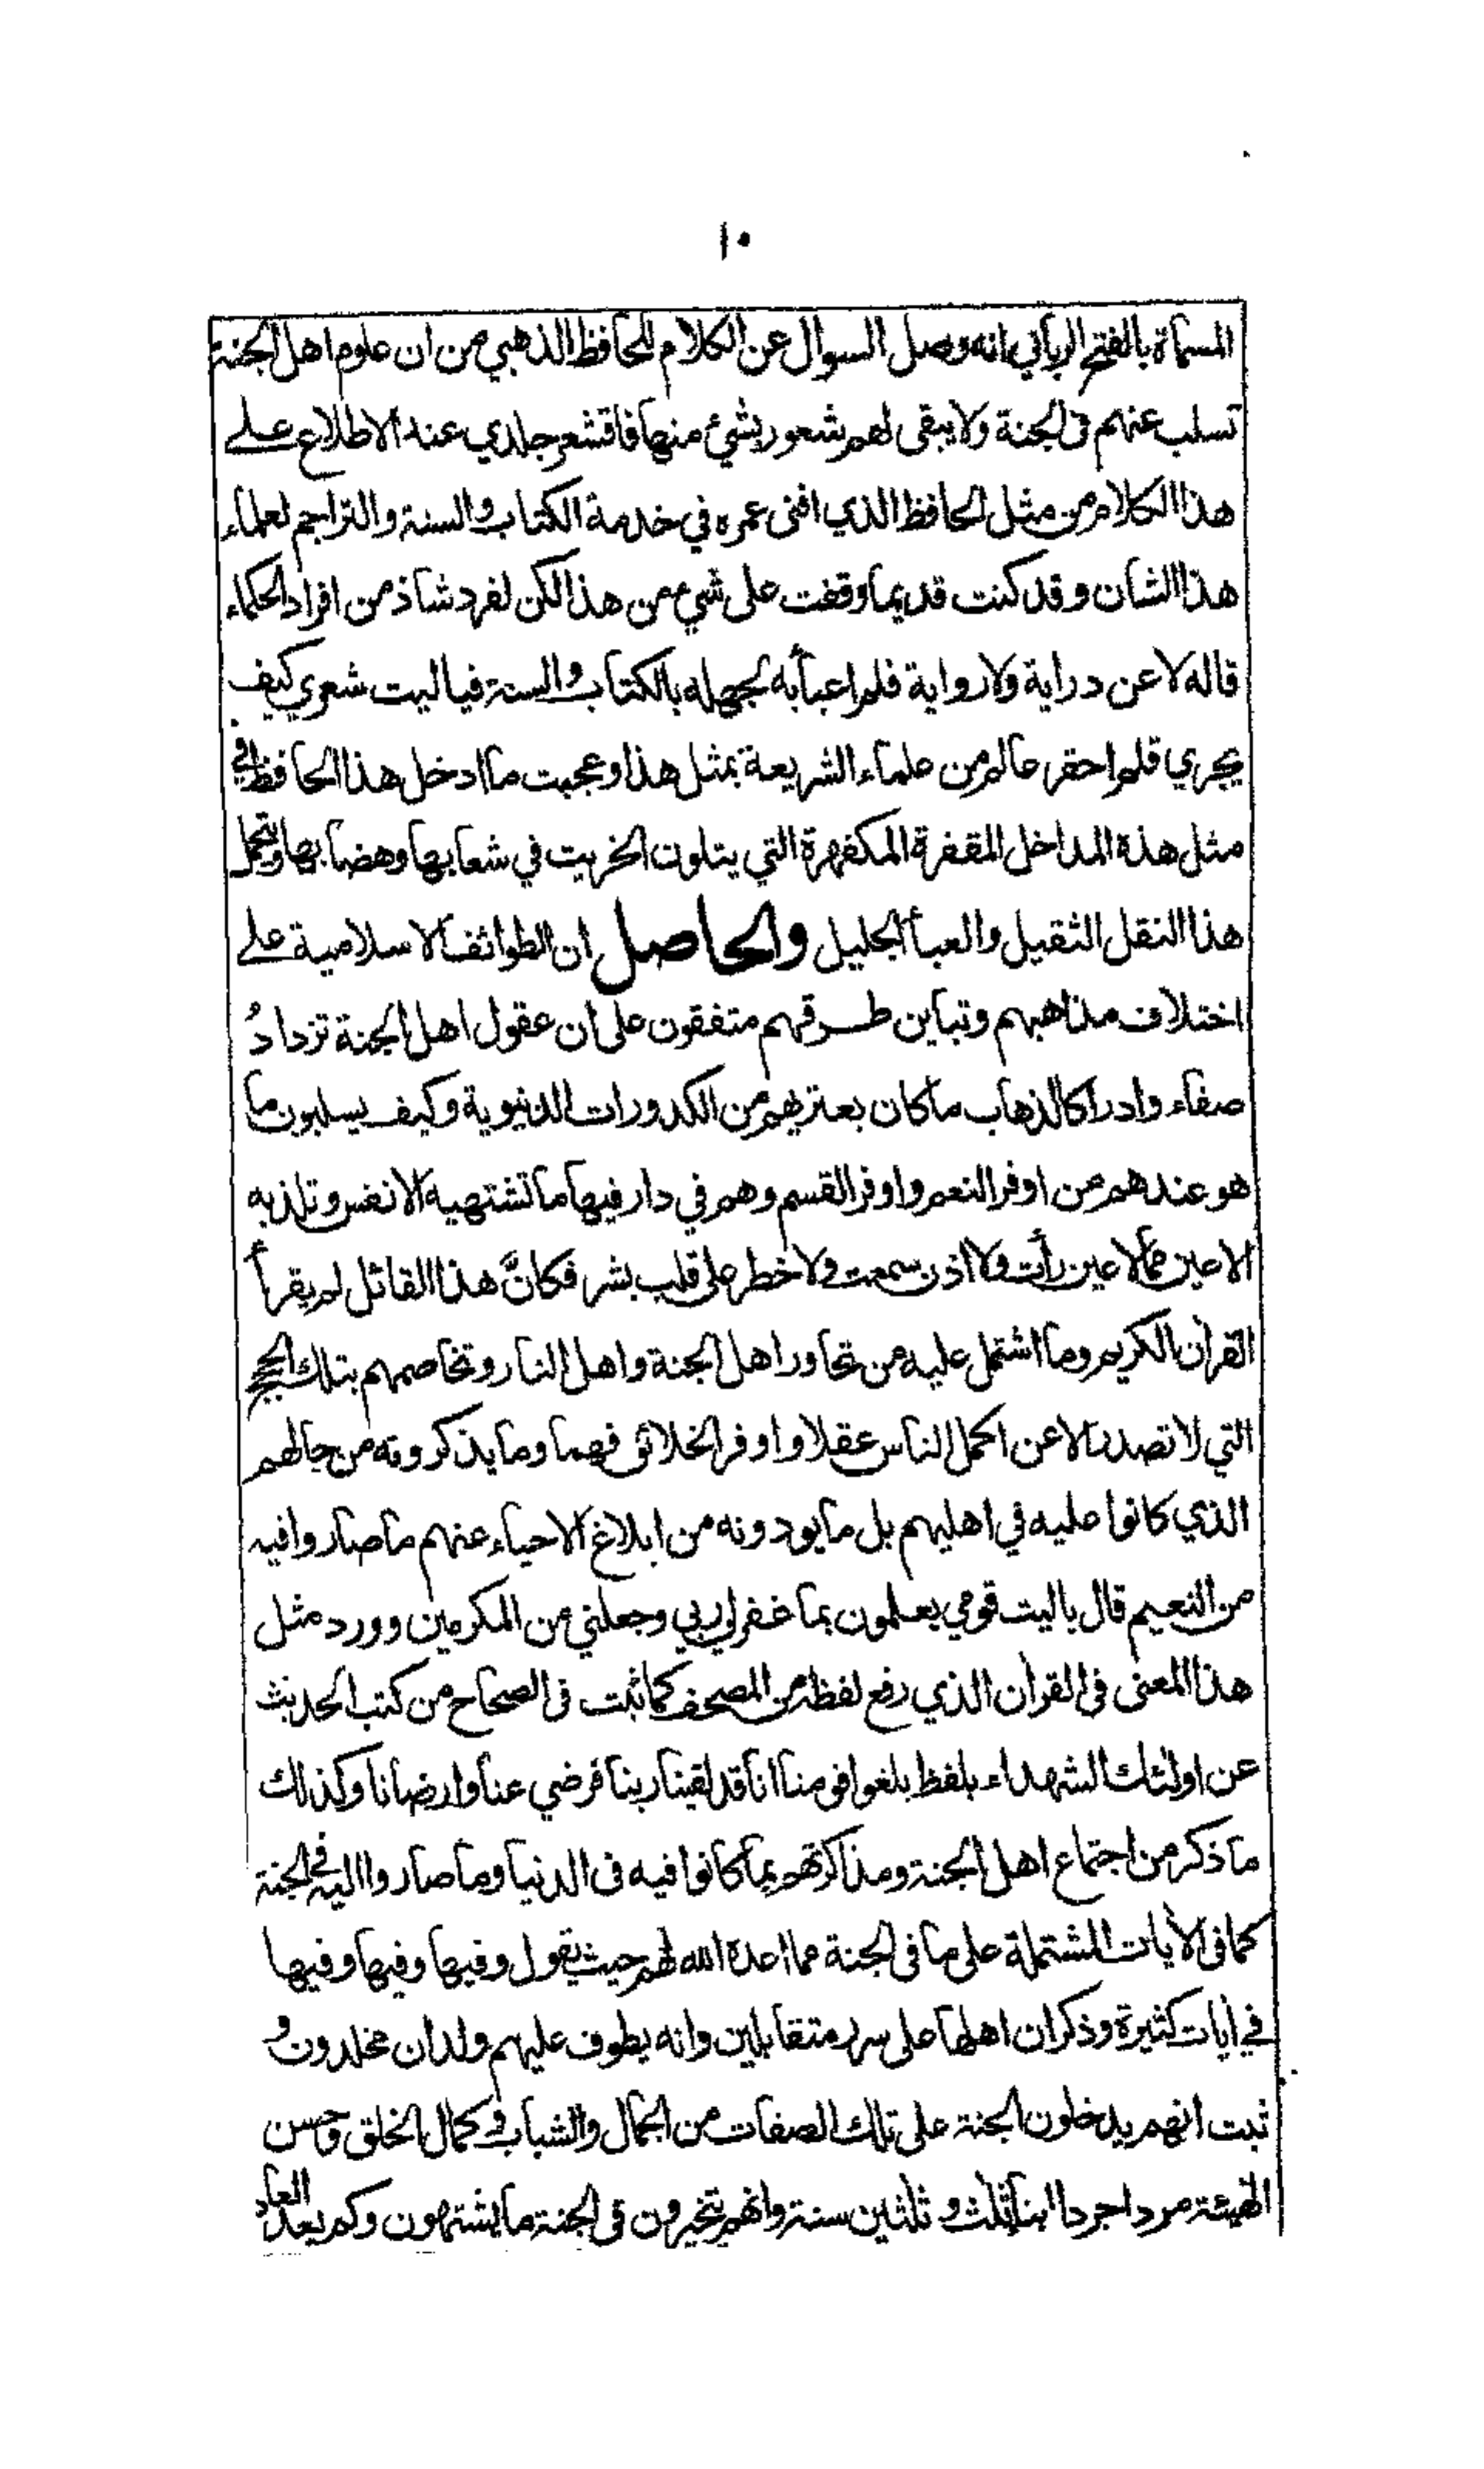 ١٠
المسماة بالفتح الرباني انه وصل السوال عن الكلام للحافظ الذهبي من ان علوم اهل الجنة
تسلب عنهم فى الجنة ولا يبقى لهم شعور بشئ منها فاقشعر جلدي عند الاطلاع على
هذا الكلام من مثل الحافظ الذي افنى عمره في خدمة الكتاب والسنة والتراجم لعلماء
هذا الشان وقد كنت قديما وقفت على شيء من هذا لكن لفرد شاذ من افراد الحكماء
قاله لا عن دراية ولا رواية فلم اعبأ به لجهله بالكتاب والسنة فيا ليت شعري كيف
يجري قلم احقر عالم من علماء الشريعة بمثل هذا وعجبت ما ادخل هذا الحافظ في
مثل هذه المداخل المقفرة المكفهرة التي يتلون الخريت في شعابها وهضابها ويتحمل
هذا النقل الثقيل والعبأ الجليل والحاصل ان الطوائف الاسلامية على
اختلاف مذاهبهم وتباين طرقهم متفقون على ان عقول اهل الجنة تزداد
صفاء وادراكا لذهاب ما كان يعتريهم من الكدورات الدنيوية وكيف يسلبون ما
هو عندهم من اوفر النعم واوفر القسم وهم في دار فيها ما تشتهيه الانفس وتلذ به
الاعين مما لا عين رأت ولا اذن سمعت ولا خطر على قلب بشر فكانّ هذا القائل لم يقرأ
القرآن الكريم وما اشتمل عليه من تحاور اهل الجنة واهل النار وتخاصمهم بتلك الحجج
التي لا تصدر الا عن اكمل الناس عقلا واوفر الخلائق فهما وما يذكرونه من حالهم
الذي كانوا عليه في اهليهم بل ما يودونه من ابلاغ الاحياء عنهم ما صاروا فيه
من النعيم قال ياليت قومي يعلمون بما غفر لي ربي وجعلني من المكرمين وورد مثل
هذا المعنى فى القرآن الذي رفع لفظه من المصحف كما ثبت فى الصحاح من كتب الحديث
عن اولئك الشهداء بلفظ بلغوا قومنا انا قد لقينا ربنا فرضي عنا وارضانا وكذلك
ما ذكر من اجتماع اهل الجنة ومذاكرتهم بما كانوا فيه فى الدنيا وما صاروا اليه في الجنة
كما فى الآيات المشتملة على ما فى الجنة مما اعده الله لهم حيث يقول وفيها وفيها وفيها
في آيات كثيرة وذكر ان اهلها على سرر متقابلين وانه يطوف عليهم ولدان مخلدون و
ثبت انهم يدخلون الجنة على تلك الصفات من الجمال والشباب وكمال الخلق وحسن
الهيئة مردا جردا ابناء ثلث وثلثين سنة وانهم يتخيرون فى الجنة ما يشتهون وكم يعد العاد